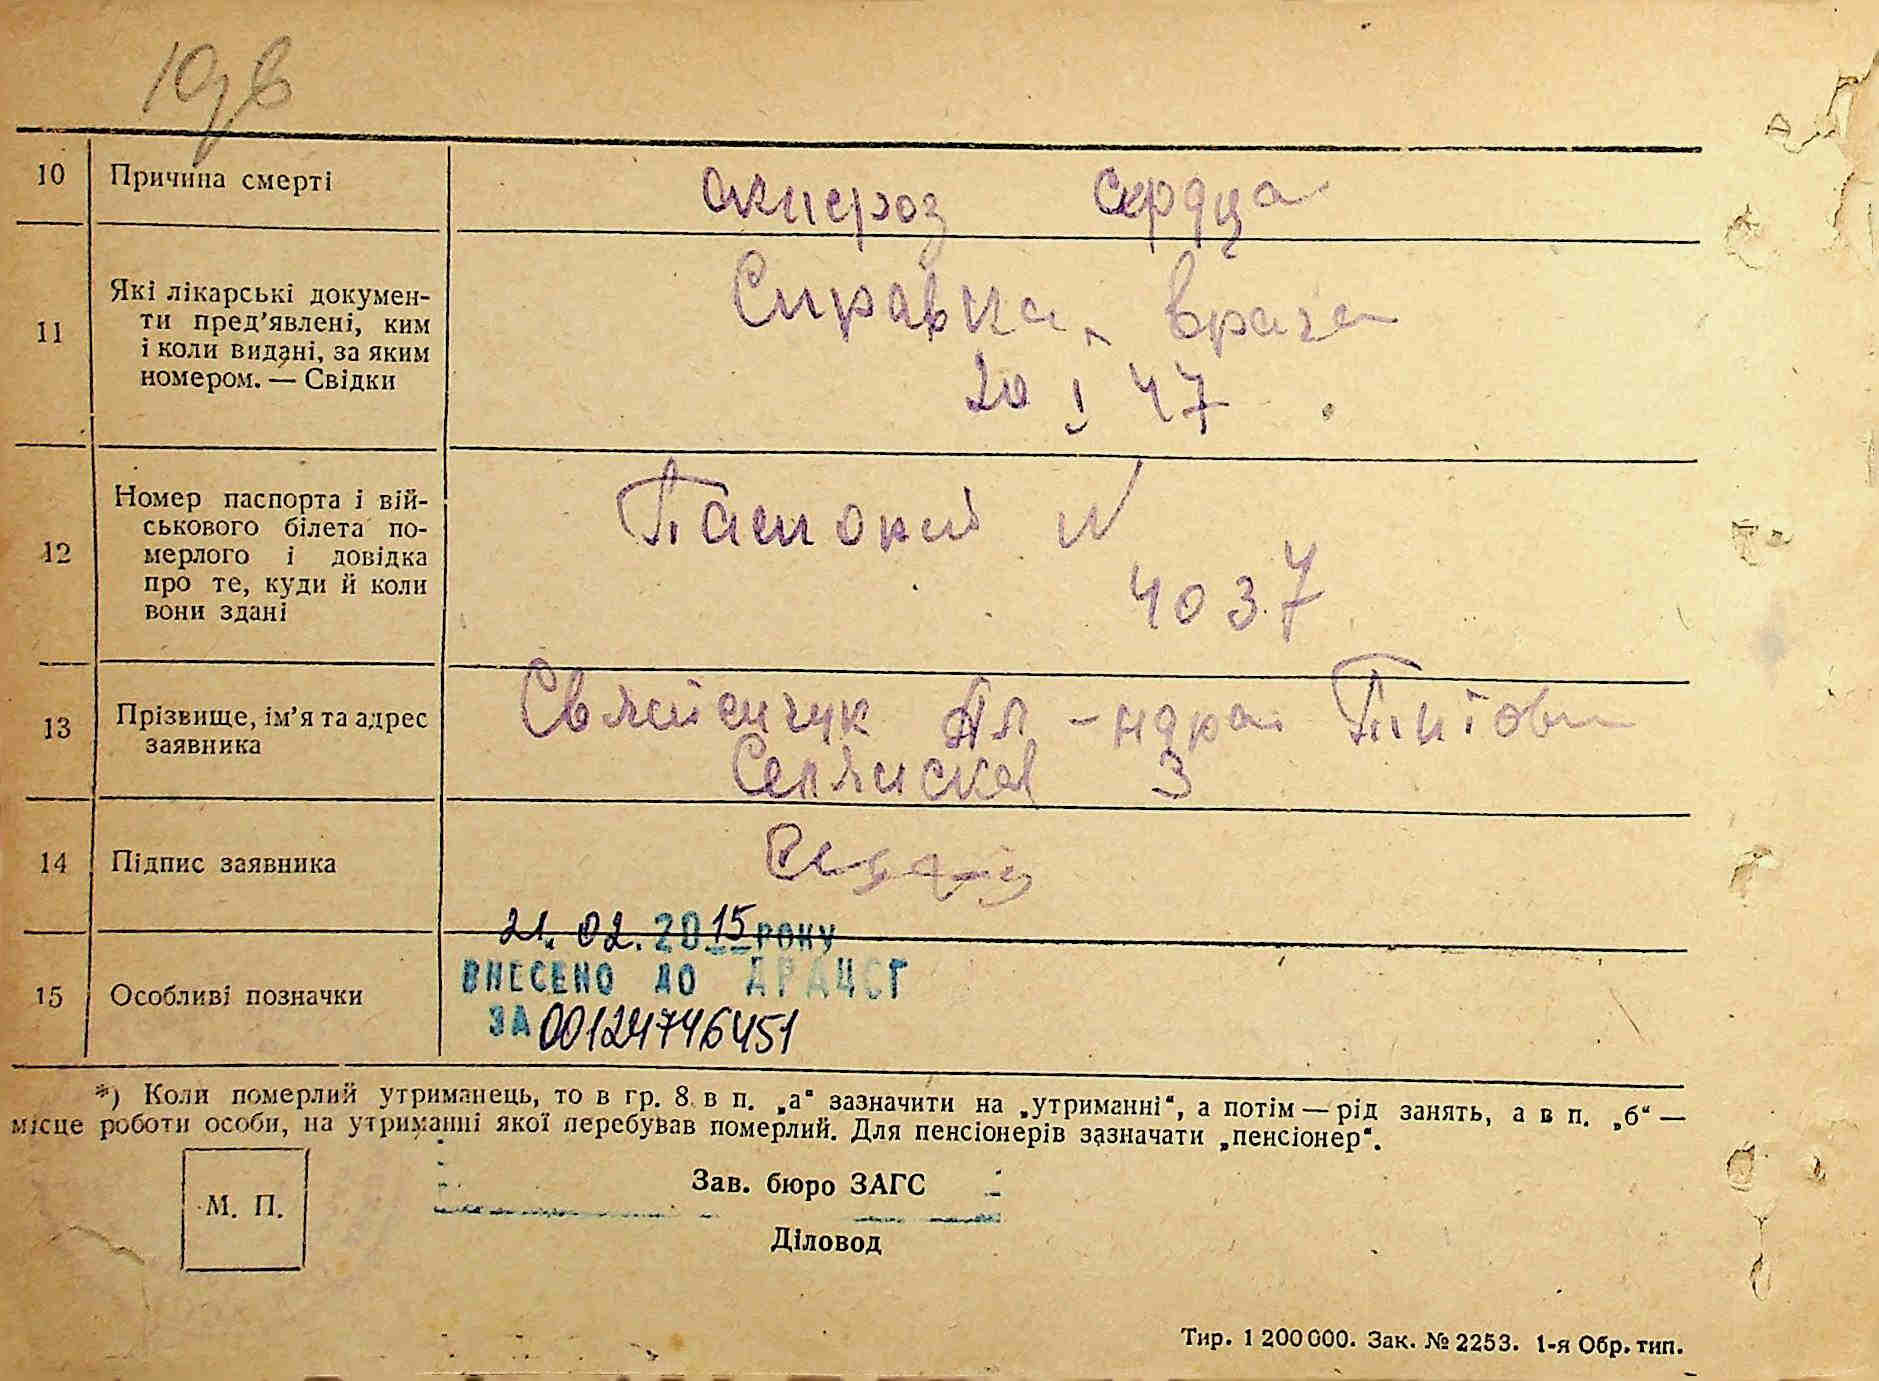 10
Причина смерті
склероз сердца
11
Які лікарські докумен-
ти пред'явлені, ким
і коли видані, за яким
номером. — Свідки
Справка врача
20 I 47
12
Номер паспорта і вій-
ськового білета по-
мерлого і довідка
про те, куди й коли
вони здані
N
4037
13
Прізвище, ім'я та адрес
заявника
Ал-ндра
3
14
Підпис заявника
15
Особливі позначки
21.02.2015 РОКУ
ВНЕСЕНО ДО ДРАЦСГ
ЗА 00124746451
*) Коли померлий утриманець, то в гр. 8 в п. „а“ зазначити на „утриманні“, а потім — рід занять, а в п. „б“ —
місце роботи особи, на утриманні якої перебував померлий. Для пенсіонерів зазначати „пенсіонер“.
М. П.
Зав. бюро ЗАГС
Діловод
Тир. 1 200 000. Зак. № 2253. 1-я Обр. тип.